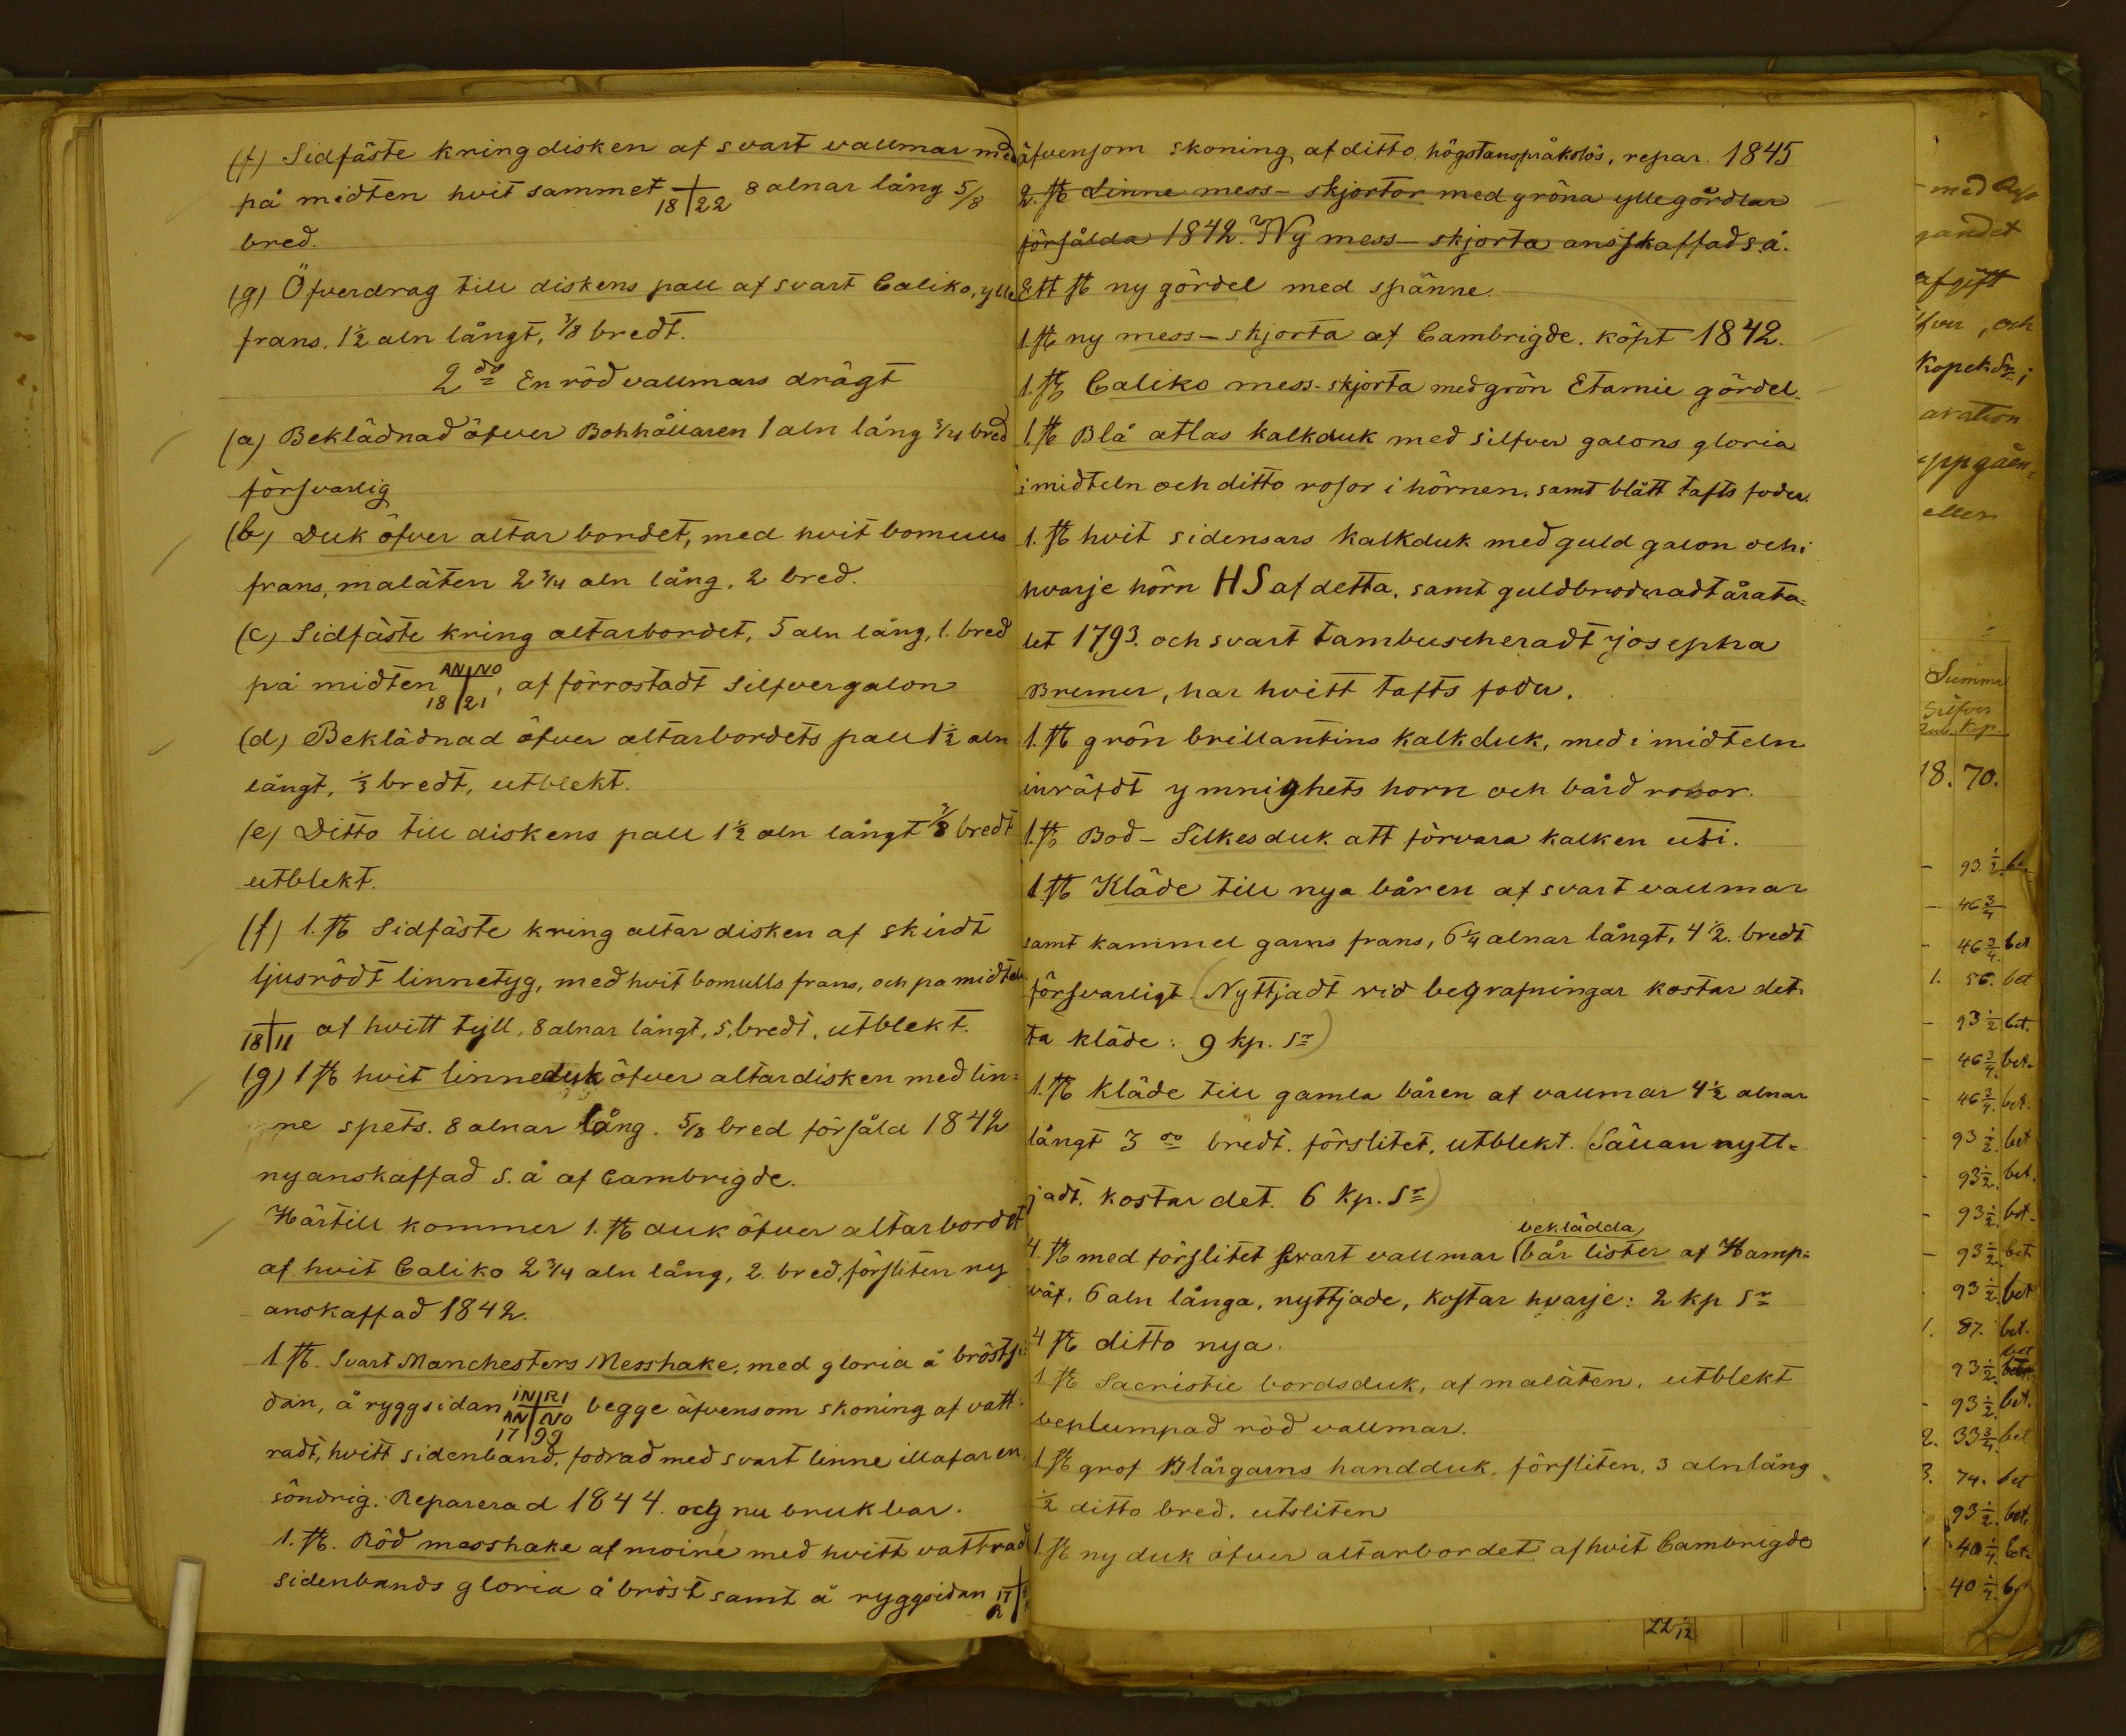 (f) Sidfäste kring disken af svart vallmar med
på midten hvit sammet 18 22 8 alnar lång 5/8
bred.
(g) Öfverdrag till diskens pall af svart Caliko, ylle
frans, 1½ aln långt, 3/8 bredt.
2do En röd vallmars drägt
(a) Beklädnad öfver Bohhållaren 1 aln lång 3/4 bred
försvarlig
(b) Duk öfver altar bordet, med hvit bomulls
frans, maläten 2 3/4 aln lång, 2 bred.
(c) Sidfäste kring altarbordet, 5 aln lång, 1. bred
på midten AN NO 18 21, af förrostadt Silfvergalon
(d) Beklädnad öfver altarbordets pall 1½ aln
långt, ½ bredt, utblekt.
(e) Ditto till diskens pall 1½ aln långt 3/8 bredt
utblekt.
(f) 1. st Sidfäste kring altar disken af skirdt
ljusrödt linnetyg, med hvit bomulls frans, och på midteln
18 11 af hvitt tyll, 8 alnar långt, 5, bredt, utblekt.
(g) 1 st hvit linneduk öfver altardisken med lin:
ne spets. 8 alnar lång. 5/8 bred försåld 1842
ny anskaffad s. å af Cambrigde.
Härtill kommer 1. st duk öfver altarbordet
af hvit Caliko 2 3/4 aln lång, 2. bred, försliten ny
anskaffad 1842.
1 st. Svart Manchesters Messhake, med gloria å bröstsi:
dan, å ryggsidan IN RI AN NO 17 99 begge äfvensom skoning af vatt:
radt, hvitt sidenband, fodrad med svart linne illafaren,
söndrig. Reparerad 1844. och nu brukbar.
1. st. Röd messhake af moiré med hvitt vattrad
sidenbands gloria å bröst samt å ryggsidan 17
äfvensom skoning af ditto, högst anspråkslös, repar. 1845
2. st Linne mess-skjortor med gröna yllegördlar
försålda 1842. Ny mess-skjorta ansskaffad s. å.
Ett st ny gördel med spänne
1. st ny mess-skjorta af Cambrigde. köpt 1842.
1. st Caliko mess-skjorta med grön Etamie gördel.
1. st Blå atlas kalkduk med silfver galons gloria
i midteln och ditto rosor i hörnen, samt blått tafts foder.
1. st hvit sidensars Kalkduk med guld galon och i
hvarje hörn HS af detta, samt guldbroderadt årata:
let 1793. och svart tambuscheradt josepha
Bremer, har hvitt tafts foder.
1. st grön brillantins kalkduk, med i midteln
inväfdt ymnighets horn och bård rosor.
1. st Bod-Silkesduk att förvara kalken uti.
1. st Kläde till nya båren af svart vallmar
samt kammel garns frans, 6 1/4 alnar långt, 4 1/2. bredt
försvarligt (Nyttjadt vid begrafningar kostar det:
ta kläde: 9 kp. Sr)
1. st kläde till gamla båren af vallmar 4½ alnar
långt 3 do bredt. förslitet, utblekt. (Sällan nytt=
jadt. kostar det. 6 kp. Sr)
beklädda
4. st med förslitet svart vallmar (bår lister af Hamp:
väf, 6 aln långa, nyttjade, kostar hvarje: 2 kp Sr
4 st ditto nya.
1 st Sacristie bordsduk, af maläten, utblekt
beplumpad röd vallmar.
1 st grof Blårgarns handduk, försliten, 3 aln lång
½ ditto bred, utsliten
1. st ny duk öfver altarbordet af hvit Cambrigde
gandet
afgift
och
Kopek Sr;
aration
eller
Summa
Silfver
Rub. Kp.
18. 70.
- 93 ½
- 46 3/4
- 46 3/4. bet
1. 56. bet
- 93 ½ bet.
- 46 3/4. bet.
- 46 3/4. bet.
- 93 ½. bet
- 93 ½. bet.
- 93 ½. bet.
- 93 ½. bet
93 ½. bet
1. 87. bet.
bet
93 ½.
- 93 ½. bet.
2. 33 3/4. bet
3. 74. bet
93 ½. bet.
40 1/4. bet.
40 1/4.